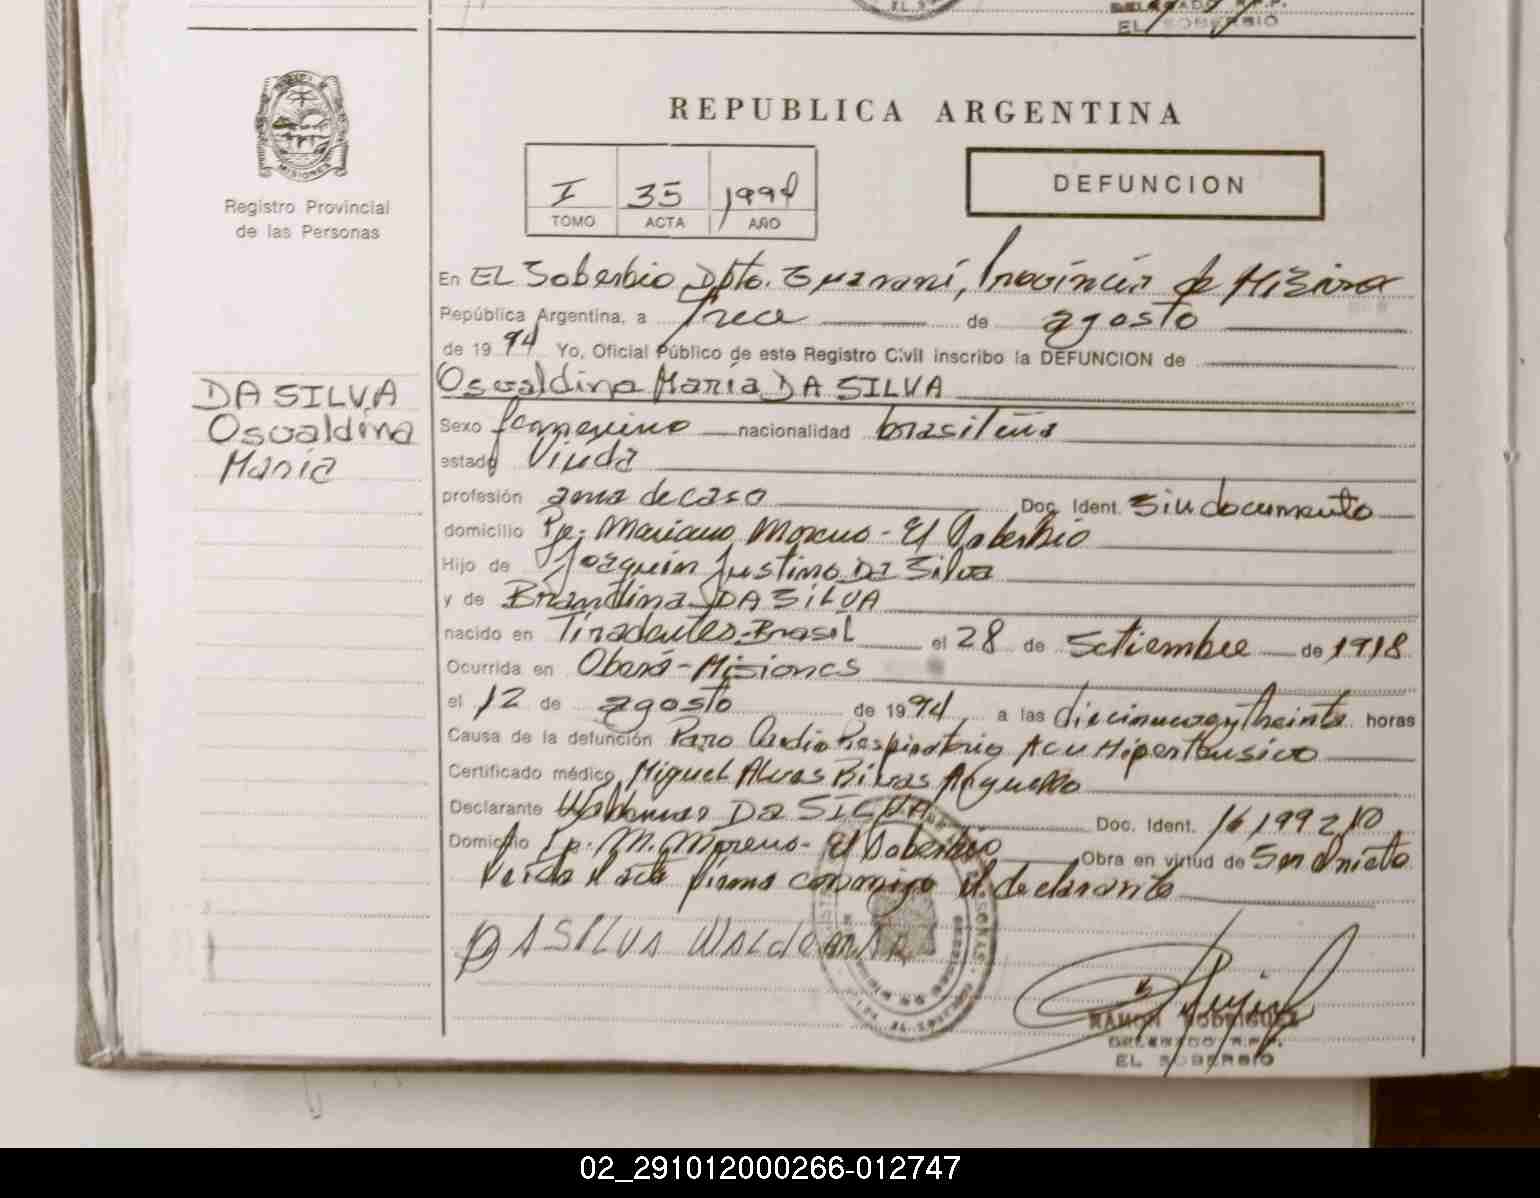 EL SOBERBIO
REPUBLICA ARGENTINA
MISIONES
Registro Provincial
de las Personas
I 35 1994
TOMO ACTA AÑO
DEFUNCION
En EL Soberbio, Dpto. Guaraní, Provincia de Misiones
República Argentina, a Trece de agosto
de 1994 Yo, Oficial Público de este Registro Civil inscribo la DEFUNCION de
DA SILVA
Osvaldina
María
Osvaldina María DA SILVA
Sexo femenino nacionalidad brasileña
estado Viuda
profesión ama de casa Doc. Ident. Sin documento
domicilio Pje. Mariano Moreno - El Soberbio
Hijo de Joaquín Justino Da Silva
y de Brandina DA SILVA
nacido en Tiradentes-Brasil el 28 de Setiembre de 1918
Ocurrida en Oberá-Misiones
el 12 de agosto de 1994 a las diecinueve y treinta horas
Causa de la defunción Paro Cardio Respiratorio ACU Hipertensivo
Certificado médico Miguel Alves Rivas Arguello
Declarante Waldemar Da SILVA Doc. Ident. 16 199210
Domicilio Pje. M. Moreno - El Soberbio Obra en virtud de Ser nieto
Leída el acta firma conmigo el declarante
DA SILVA WALDEMAR
RAMON RODRIGUEZ
DELEGADO R.P.P.
EL SOBERBIO
02_291012000266-012747